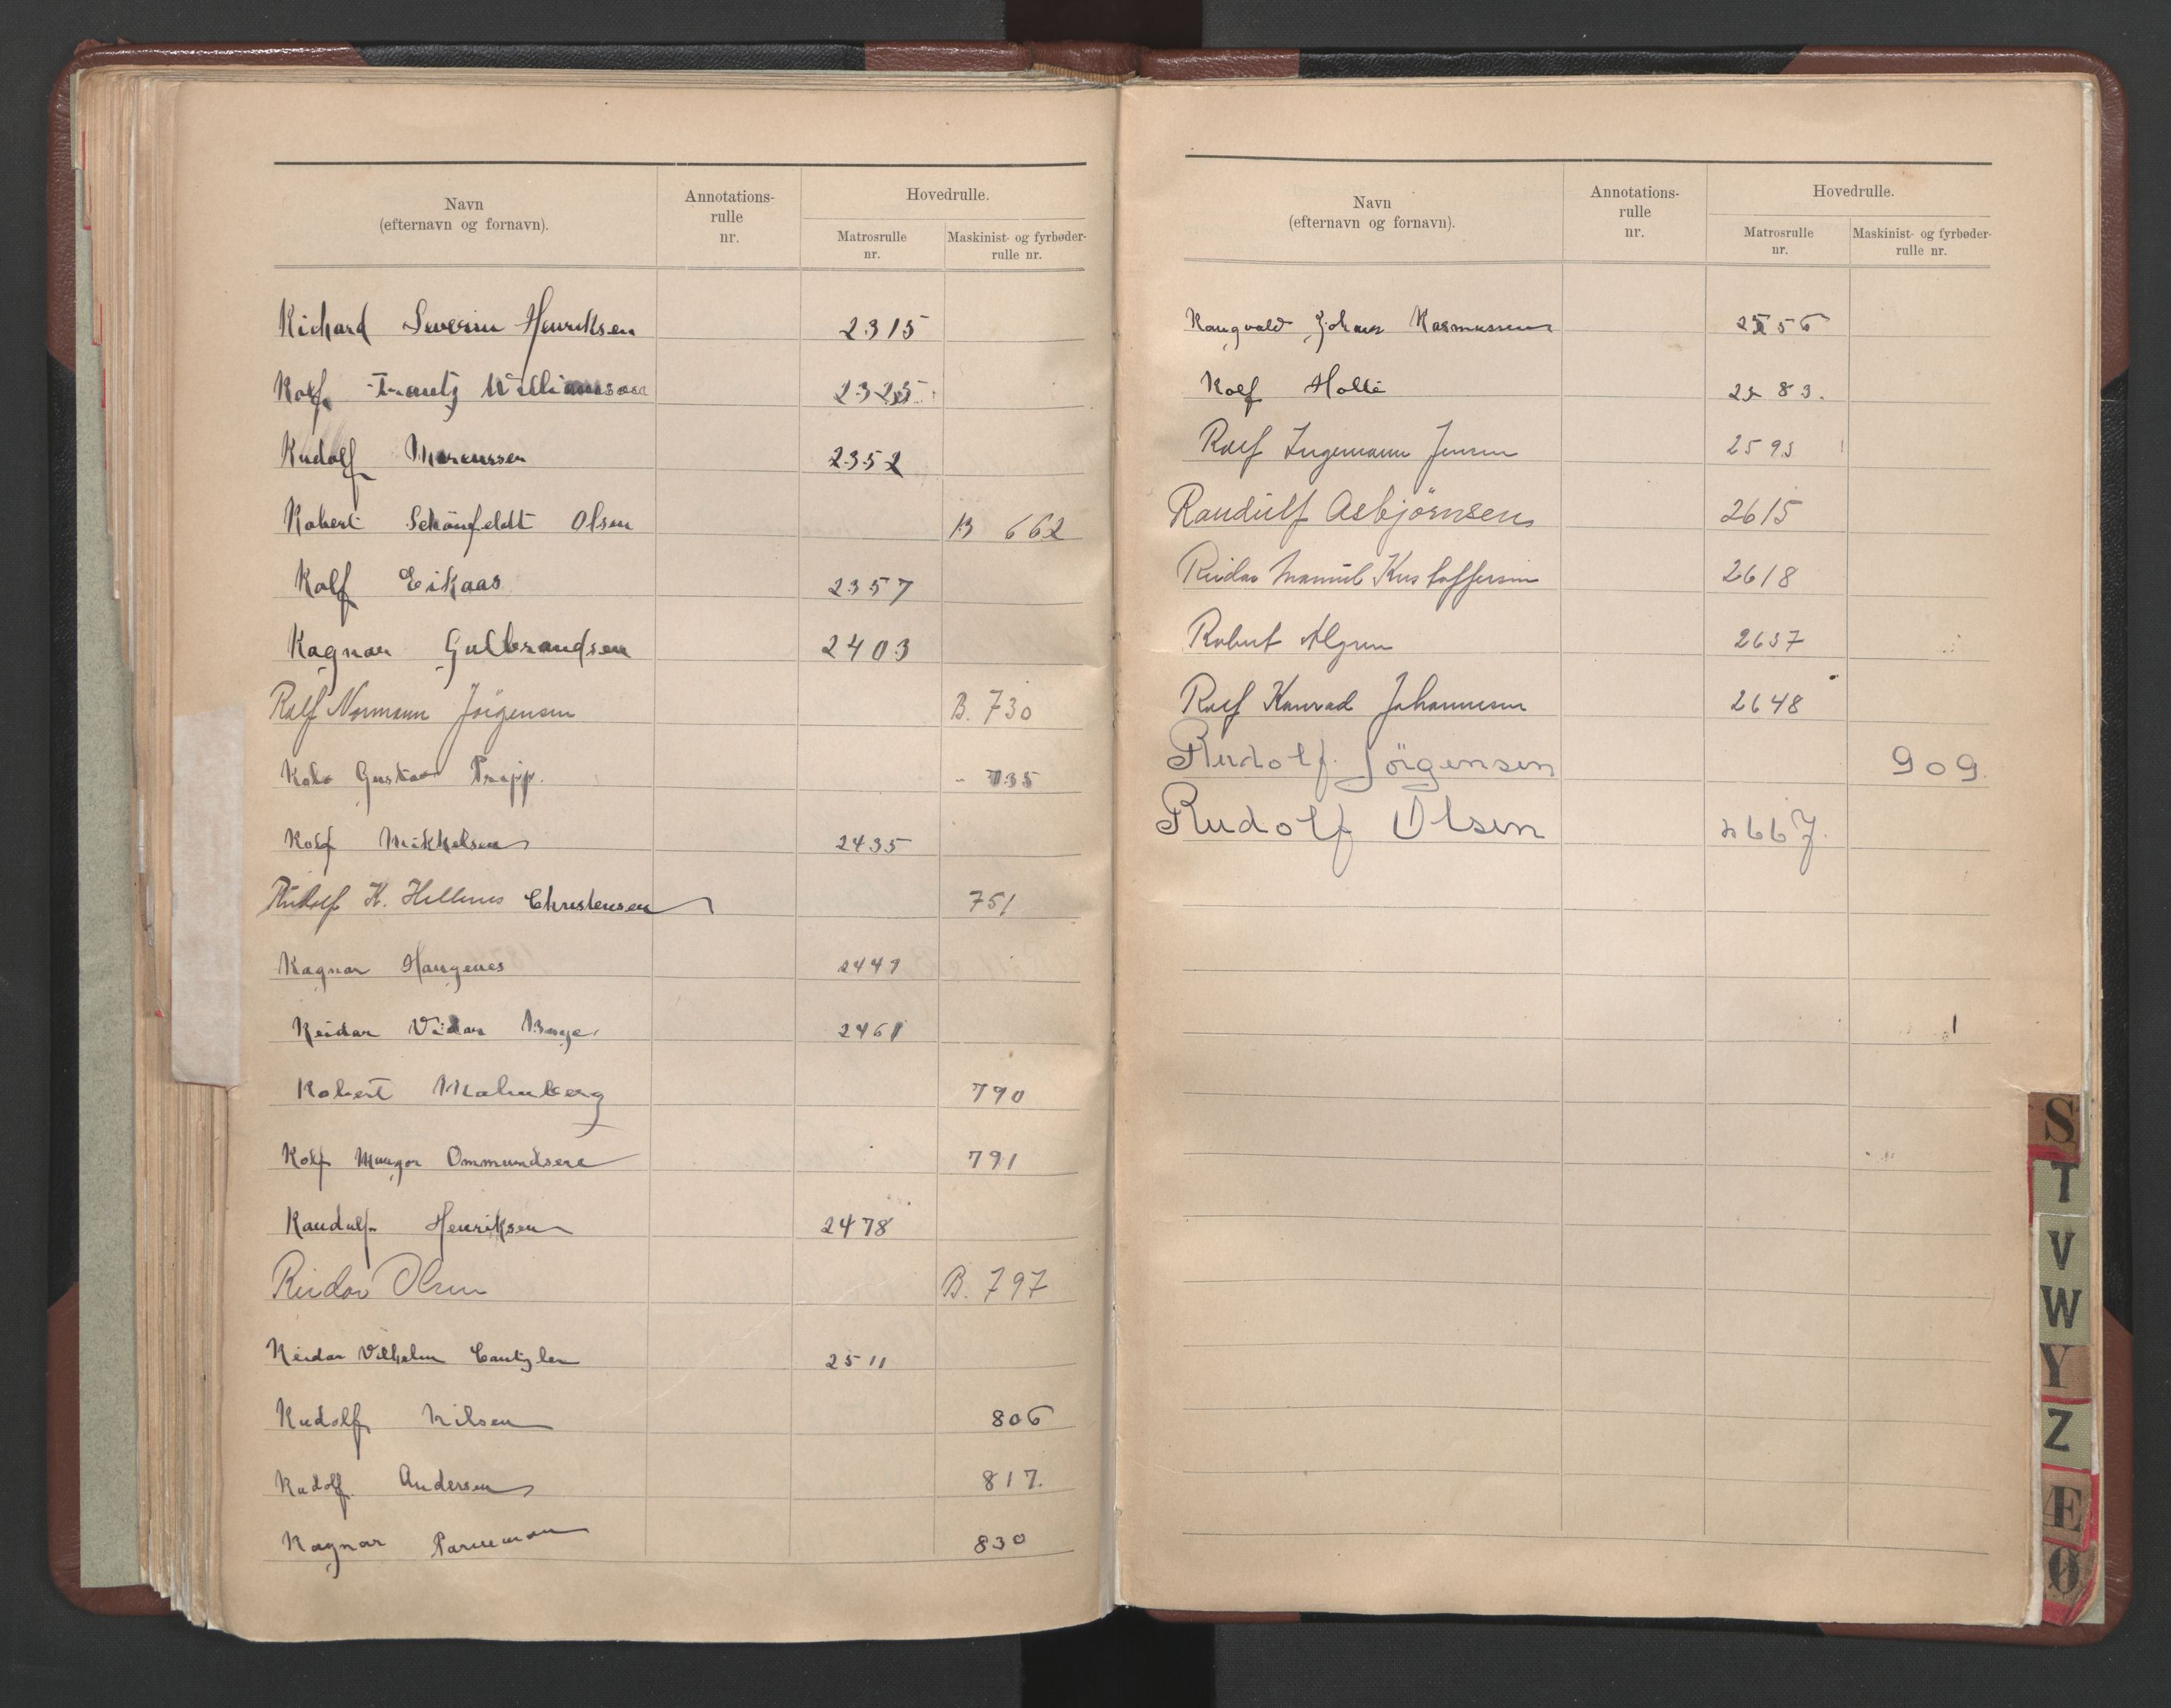 Navn
(efternavn og fornavn).
Annotations-
rulle
nr.
Hovedrulle.
Matrosrulle
nr.
Maskinist- og fyrbøder-
rulle nr.
Richard Severin Henriksen 2315
Rolf Frantz Williamsen 2325
Rudolf Marenssen 2352
Robert Schönfeldt Olsen B 662
Rolf Eikaas 2357
Ragnar Gulbrandsen 2403
Ralf Normann Jörgensen B. 730
Rolv Gustav Trapp. - 735
Rolf Mikkelsen 2435
Rudolf K. Hillems Christensen 751
Ragnar Haugenes 2449
Reidar Vidar Berge 2461
Robert Malmberg 790
Rolf Maugor Ommundsen 791
Randulf Henriksen 2478
Reidar Olsen B. 797
Reidar Vilhelm Cantzler 2511
Rudolf Nilsen 806
Rudolf Andersen 817.
Ragnar Parneman 830
Navn
(efternavn og fornavn).
Annotations-
rulle
nr.
Hovedrulle.
Matrosrulle
nr.
Maskinist- og fyrbøder-
rulle nr.
Rangvald Johan Rasmussen 2556
Rolf Holte 2583.
Rolf Ingemann Jensen 2593
Randulf Asbjörnsen 2615
Reidar Kristoffersen 2618
Robert Algren 2637
Rolf Konrad Johannesen 2648
Rudolf Jörgensen 909.
Rudolf Olsen 2667.
S
T
V
W
Y
Z
Æ
Ø